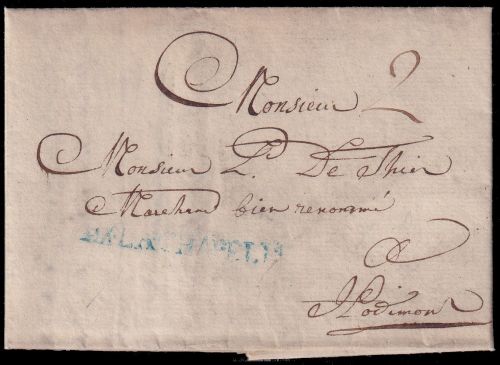 Monsieur 2
Monsieur L. De Thier
Marchand bien renommé
A
Hodimon